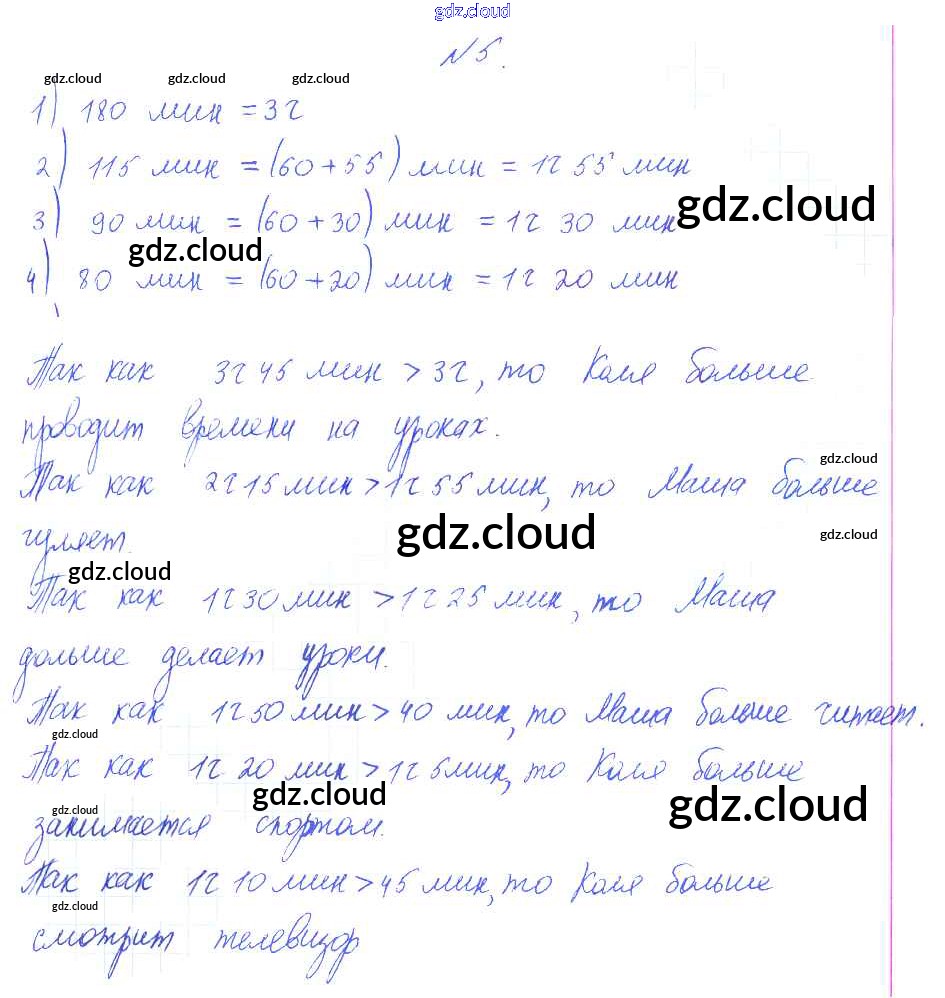 gdz.cloud
N 5.
gdz.cloud gdz.cloud gdz.cloud
1) 180 мин = 3ч
2) 115 мин = (60 + 55) мин = 1ч 55 мин
gdz.cloud
3) 90 мин = (60 + 30) мин = 1ч 30 мин
gdz.cloud
4) 80 мин = (60 + 20) мин = 1ч 20 мин
Так как 3ч 45 мин > 3ч, то Коля больше
проводит времени на уроках.
gdz.cloud
Так как 2ч 15 мин > 1ч 55 мин, то Маша больше
gdz.cloud gdz.cloud
гуляет.
gdz.cloud
Так как 1ч 30 мин > 1ч 25 мин, то Маша
дольше делает уроки.
Так как 1ч 50 мин > 40 мин, то Маша больше читает.
gdz.cloud
Так как 1ч 20 мин > 1ч 5 мин, то Коля больше
gdz.cloud gdz.cloud gdz.cloud
занимается спортом.
Так как 1ч 10 мин > 45 мин, то Коля больше
gdz.cloud
смотрит телевизор